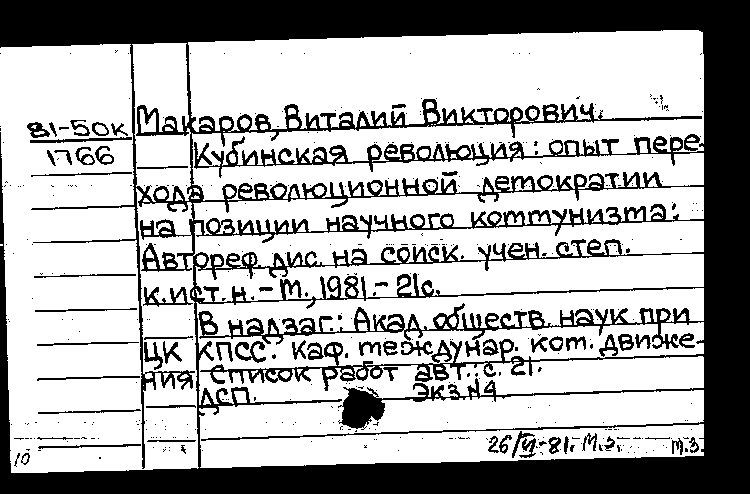 81-50к Макаров, Виталий Викторович.
1766 Кубинская революция: опыт пере-
хода революционной демократии
на позиции научного коммунизма:
Автореф. дис. на соиск. учен. степ.
к.ист.н. - М., 1981. - 21с.
В надзаг.: Акад. обществ. наук при
ЦК КПСС. Каф. междунар. ком. движе-
ния. Список работ авт.: с. 21.
ДСП. Экз. №4
26/VI-81. М.З. М.З.
10